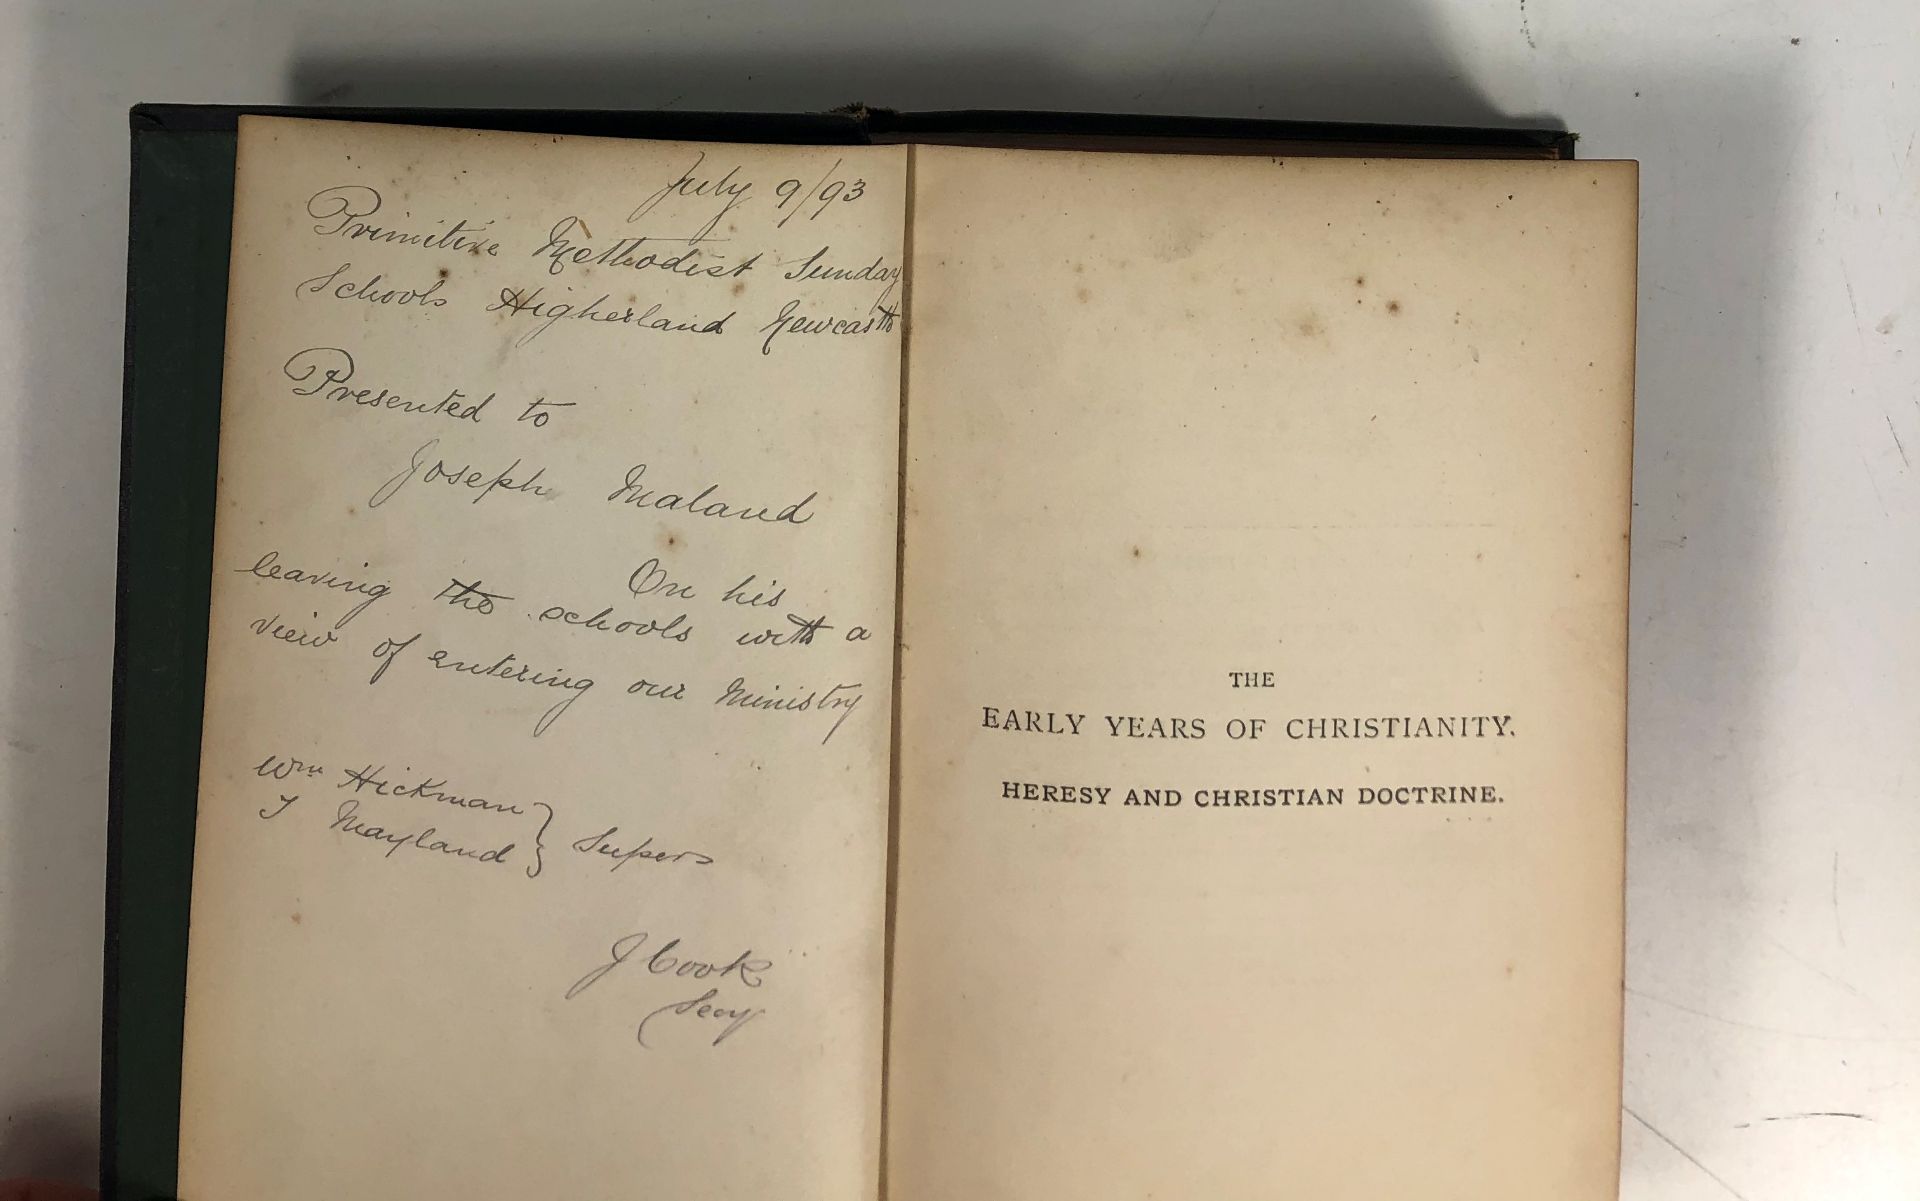 July 9/93
Primitive Methodist Sunday
Schools Higherland Newcastle
Presented to
Joseph Maland
On his
leaving the schools with a
view of entering our Ministry
Wm Hickman
T Mayland } Supers
J Cook
Secy
THE
EARLY YEARS OF CHRISTIANITY.
HERESY AND CHRISTIAN DOCTRINE.